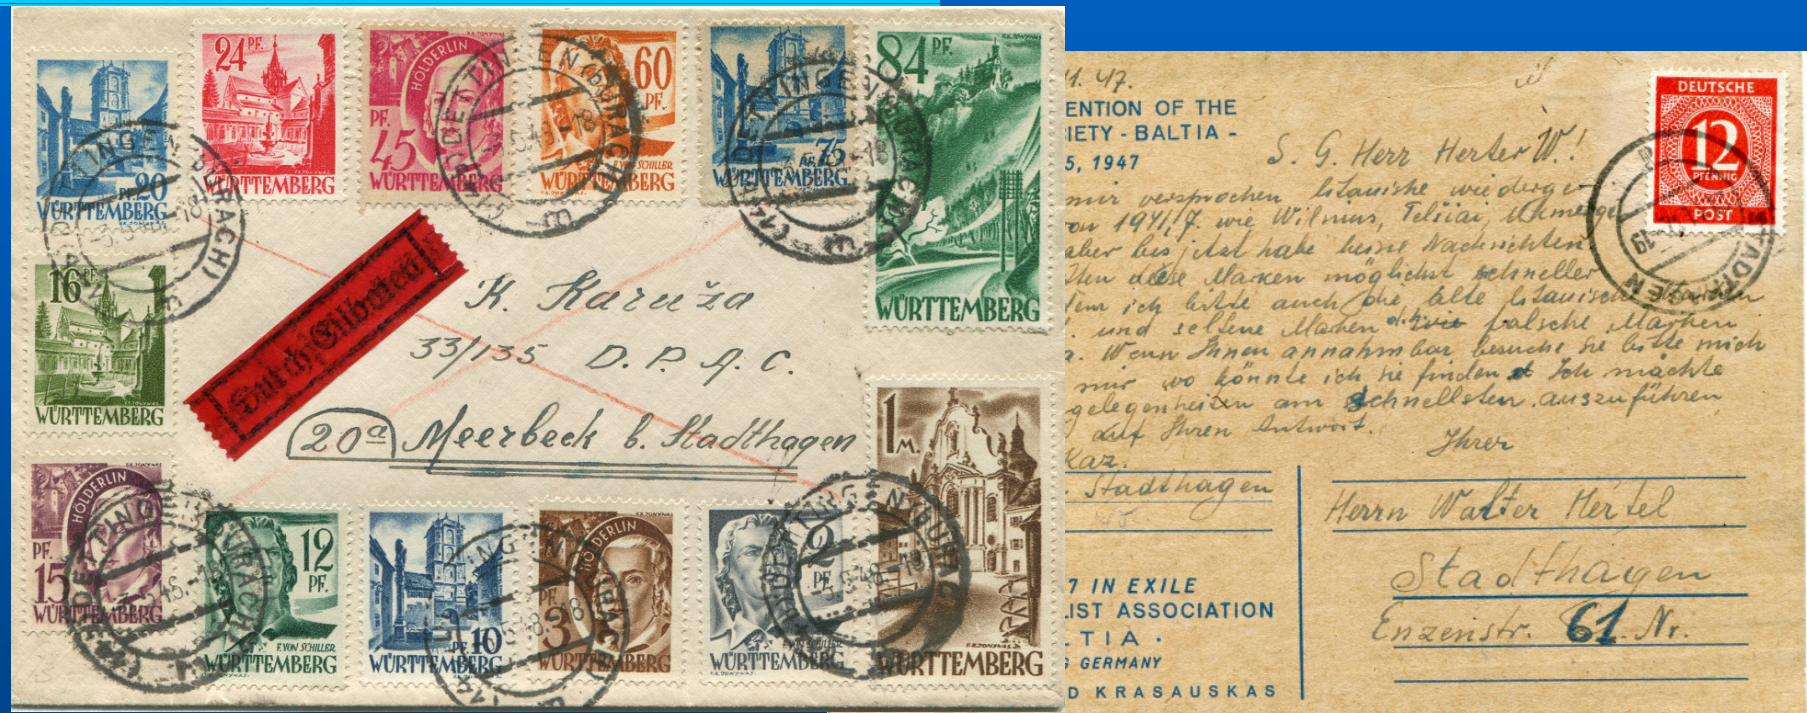 PF. 20
WÜRTTEMBERG
24 PF.
WÜRTTEMBERG
HÖLDERLIN
PF. 45
WÜRTTEMBERG
60 PF.
F. VON SCHILLER
WÜRTTEMBERG
75
WÜRTTEMBERG
84 PF.
WÜRTTEMBERG
16 PF
WÜRTTEMBERG
Durch Eilboten
K. Karuža
33/135 D. P. A. C.
20a Meerbeck b. Stadthagen
1 M.
WÜRTTEMBERG
HÖLDERLIN
PF. 15
WÜRTTEMBERG
12 PF.
F. VON SCHILLER
WÜRTTEMBERG
PF. 10
WÜRTTEMBERG
HÖLDERLIN
PF. 3
WÜRTTEMBERG
2 PF
F. VON SCHILLER
WÜRTTEMBERG
1. 47.
ENTION OF THE
IETY - BALTIA -
5, 1947
DEUTSCHE
12
PFENNIG
POST
S. G. Herr Herter W!
mir versprochen litauische wiederge-
von 1941/7. wie Wilnius, Telšiai, Ukmerge
aber bis jetzt habe keine Nachrichten.
diese Marken möglichst schneller
ich bitte auch die alte litauische
und seltene Marken falsche Marken
Wenn Ihnen annahmbar, besuche Sie bitte mich
mir wo könnte ich sie finden Ich möchte
gelegenheiten am schnellsten auszuführen
auf Ihren Antwort.
Ihrer
Kaz.
Stadthagen
Herrn Walter Hertel
Stadthagen
Enzenstr. 61. Nr.
7 IN EXILE
LIST ASSOCIATION
TIA ·
GERMANY
D KRASAUSKAS